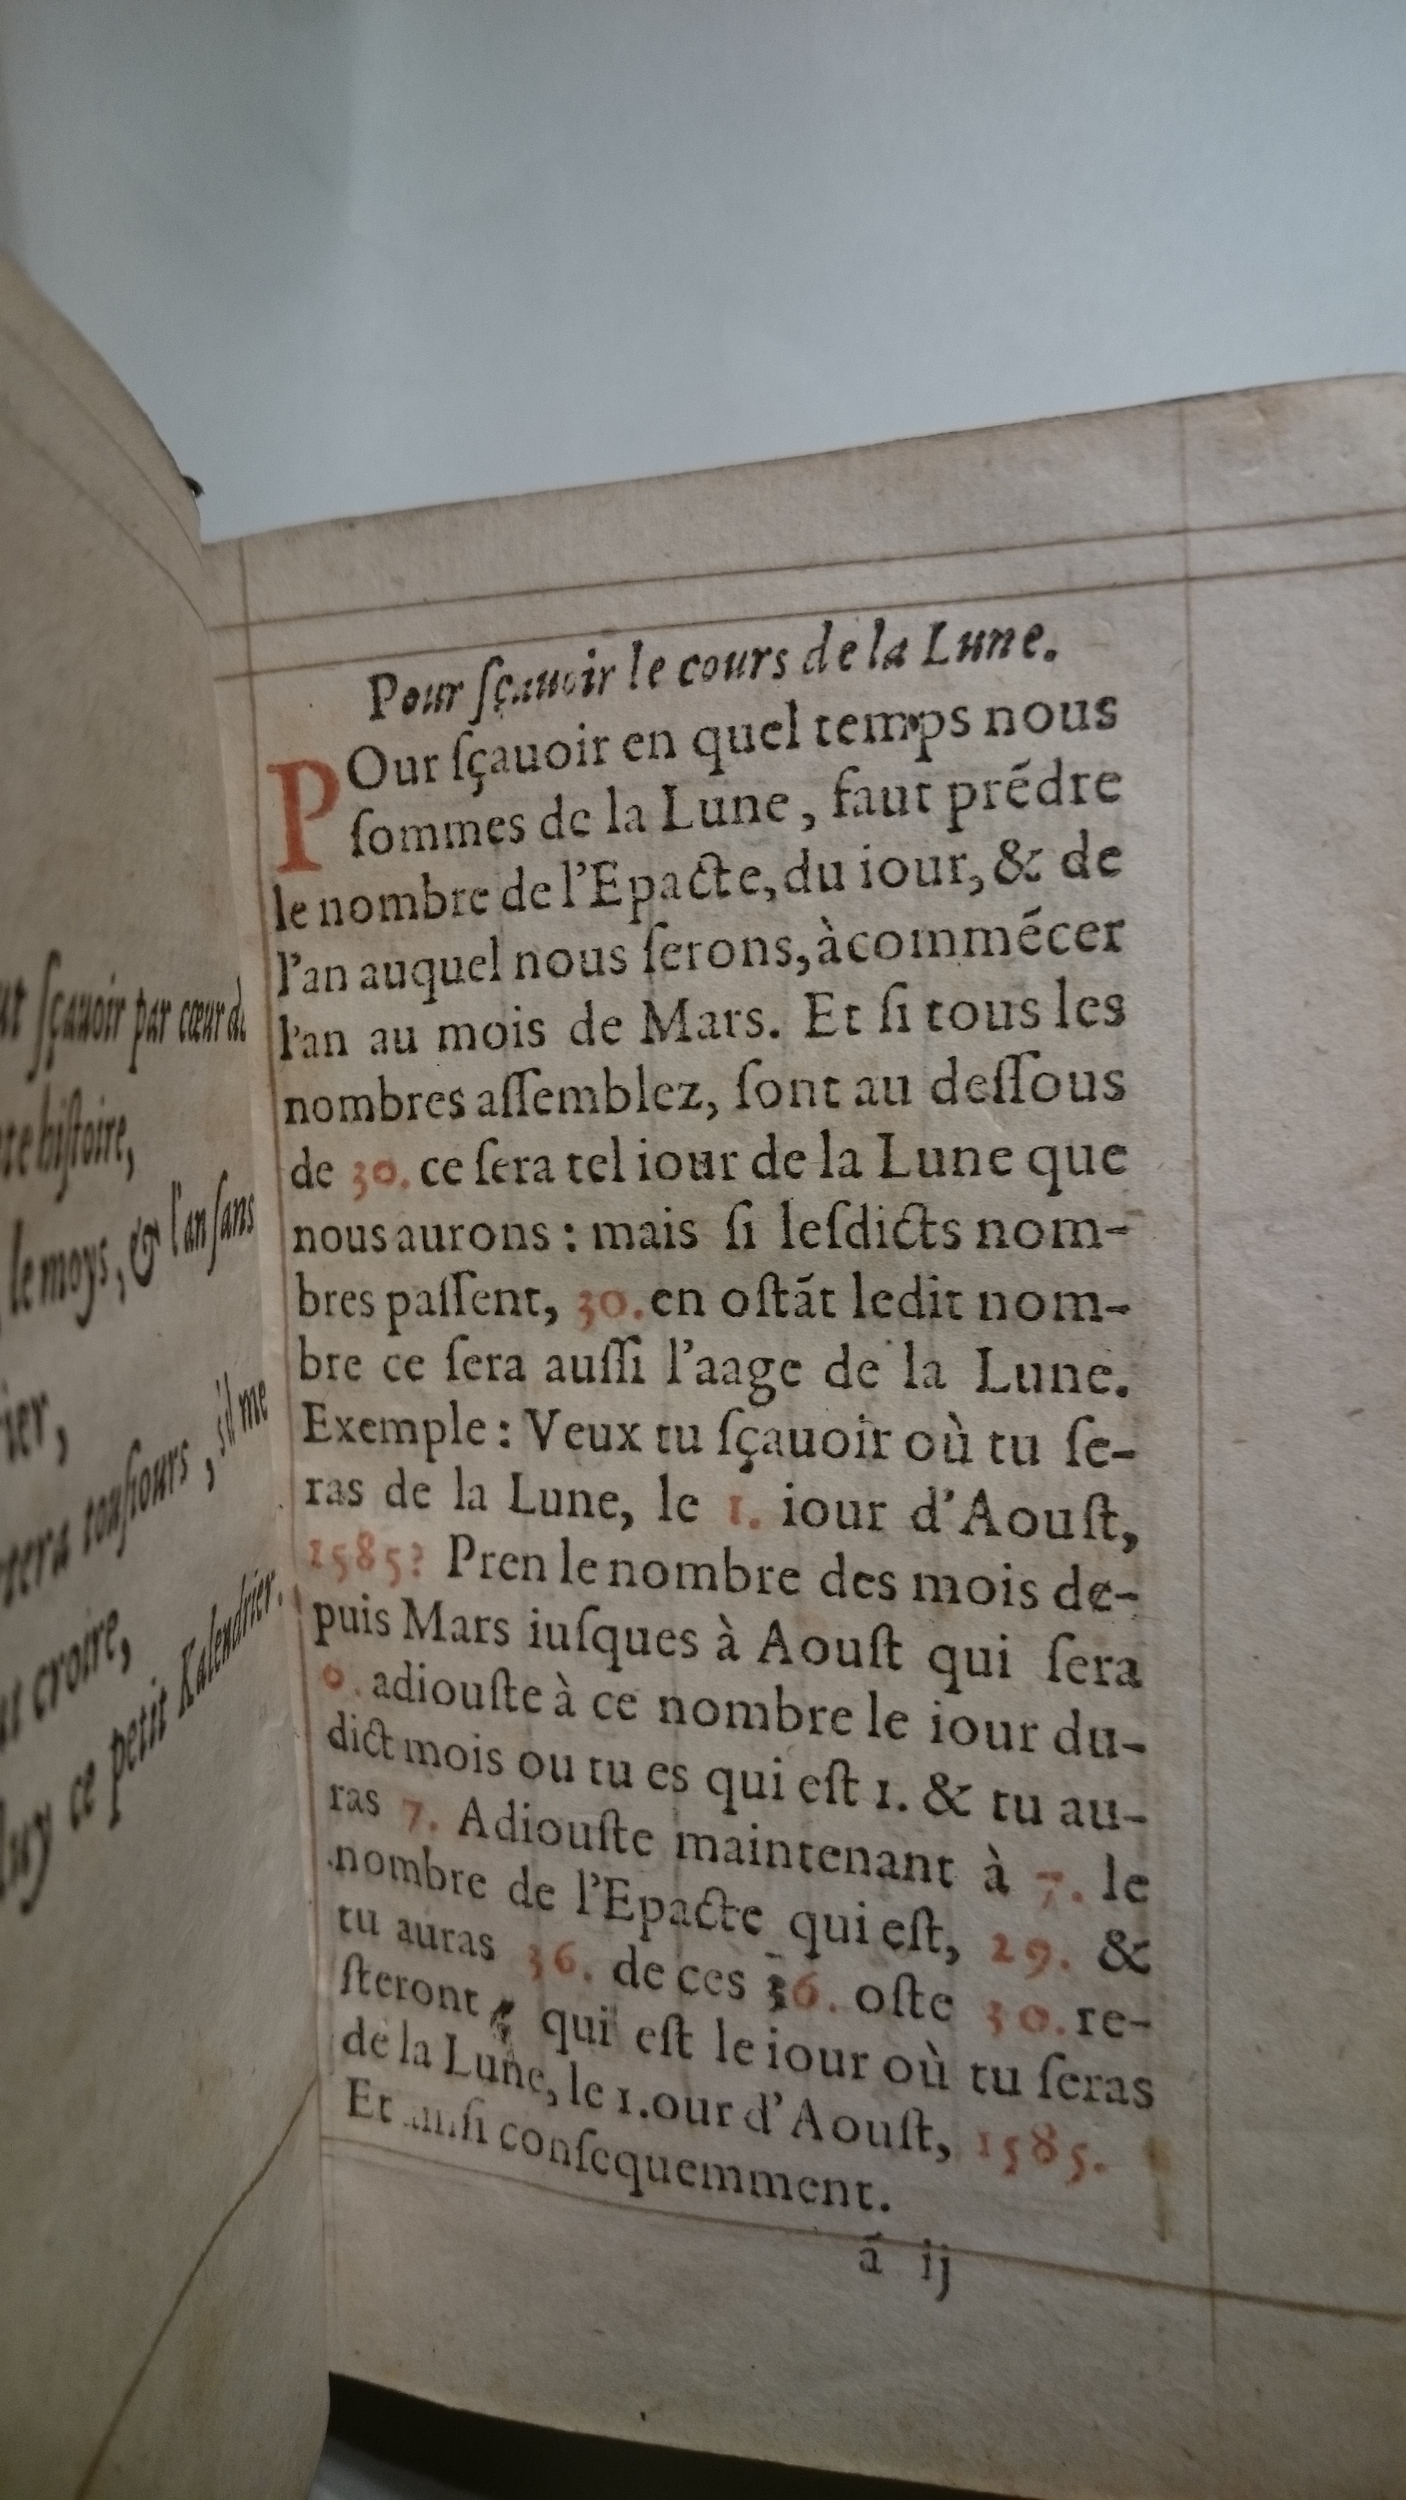 ſçauoir par cœur de
hiſtoire,
le moys, & l'an ſans
touſiours, s'il me
croire,
ce petit Kalendrier.
Pour ſçauoir le cours de la Lune.
POur ſçauoir en quel temps nous
ſommes de la Lune, faut prẽdre
le nombre de l'Epacte, du iour, & de
l'an auquel nous ſerons, à commẽcer
l'an au mois de Mars. Et ſi tous les
nombres aſſemblez, ſont au deſſous
de 30. ce ſera tel iour de la Lune que
nous aurons : mais ſi leſdicts nom-
bres paſſent, 30. en oſtãt ledit nom-
bre ce ſera auſſi l'aage de la Lune.
Exemple : Veux tu ſçauoir où tu ſe-
ras de la Lune, le 1. iour d'Aouſt,
1585? Pren le nombre des mois de-
puis Mars iuſques à Aouſt qui ſera
adiouſte à ce nombre le iour du-
dict mois ou tu es qui eſt 1. & tu au-
ras 7. Adiouſte maintenant à 7. le
nombre de l'Epacte qui eſt, 29. &
tu auras 36. de ces 36. oſte 30. re-
ſteront qui eſt le iour où tu ſeras
de la Lune, le 1.our d'Aouſt, 1585.
Et conſequemment.
ã ij